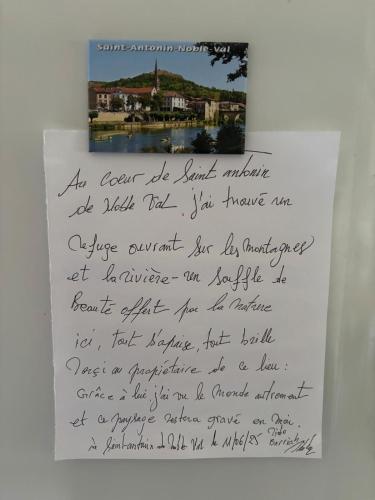 Saint-Antonin-Noble-Val
Au cœur de Saint antonin
de Noble Val j'ai trouvé un
refuge ouvrant sur les montagnes
et la rivière - un souffle de
Beauté offert par la nature
ici, tout s'apaise, tout brille
Merçi au propriétaire de ce lieu :
Grâce à lui j'ai vu le monde autrement
et ce paysage restera gravé en moi.
à Saint-antonin de Noble Val le 11/06/25